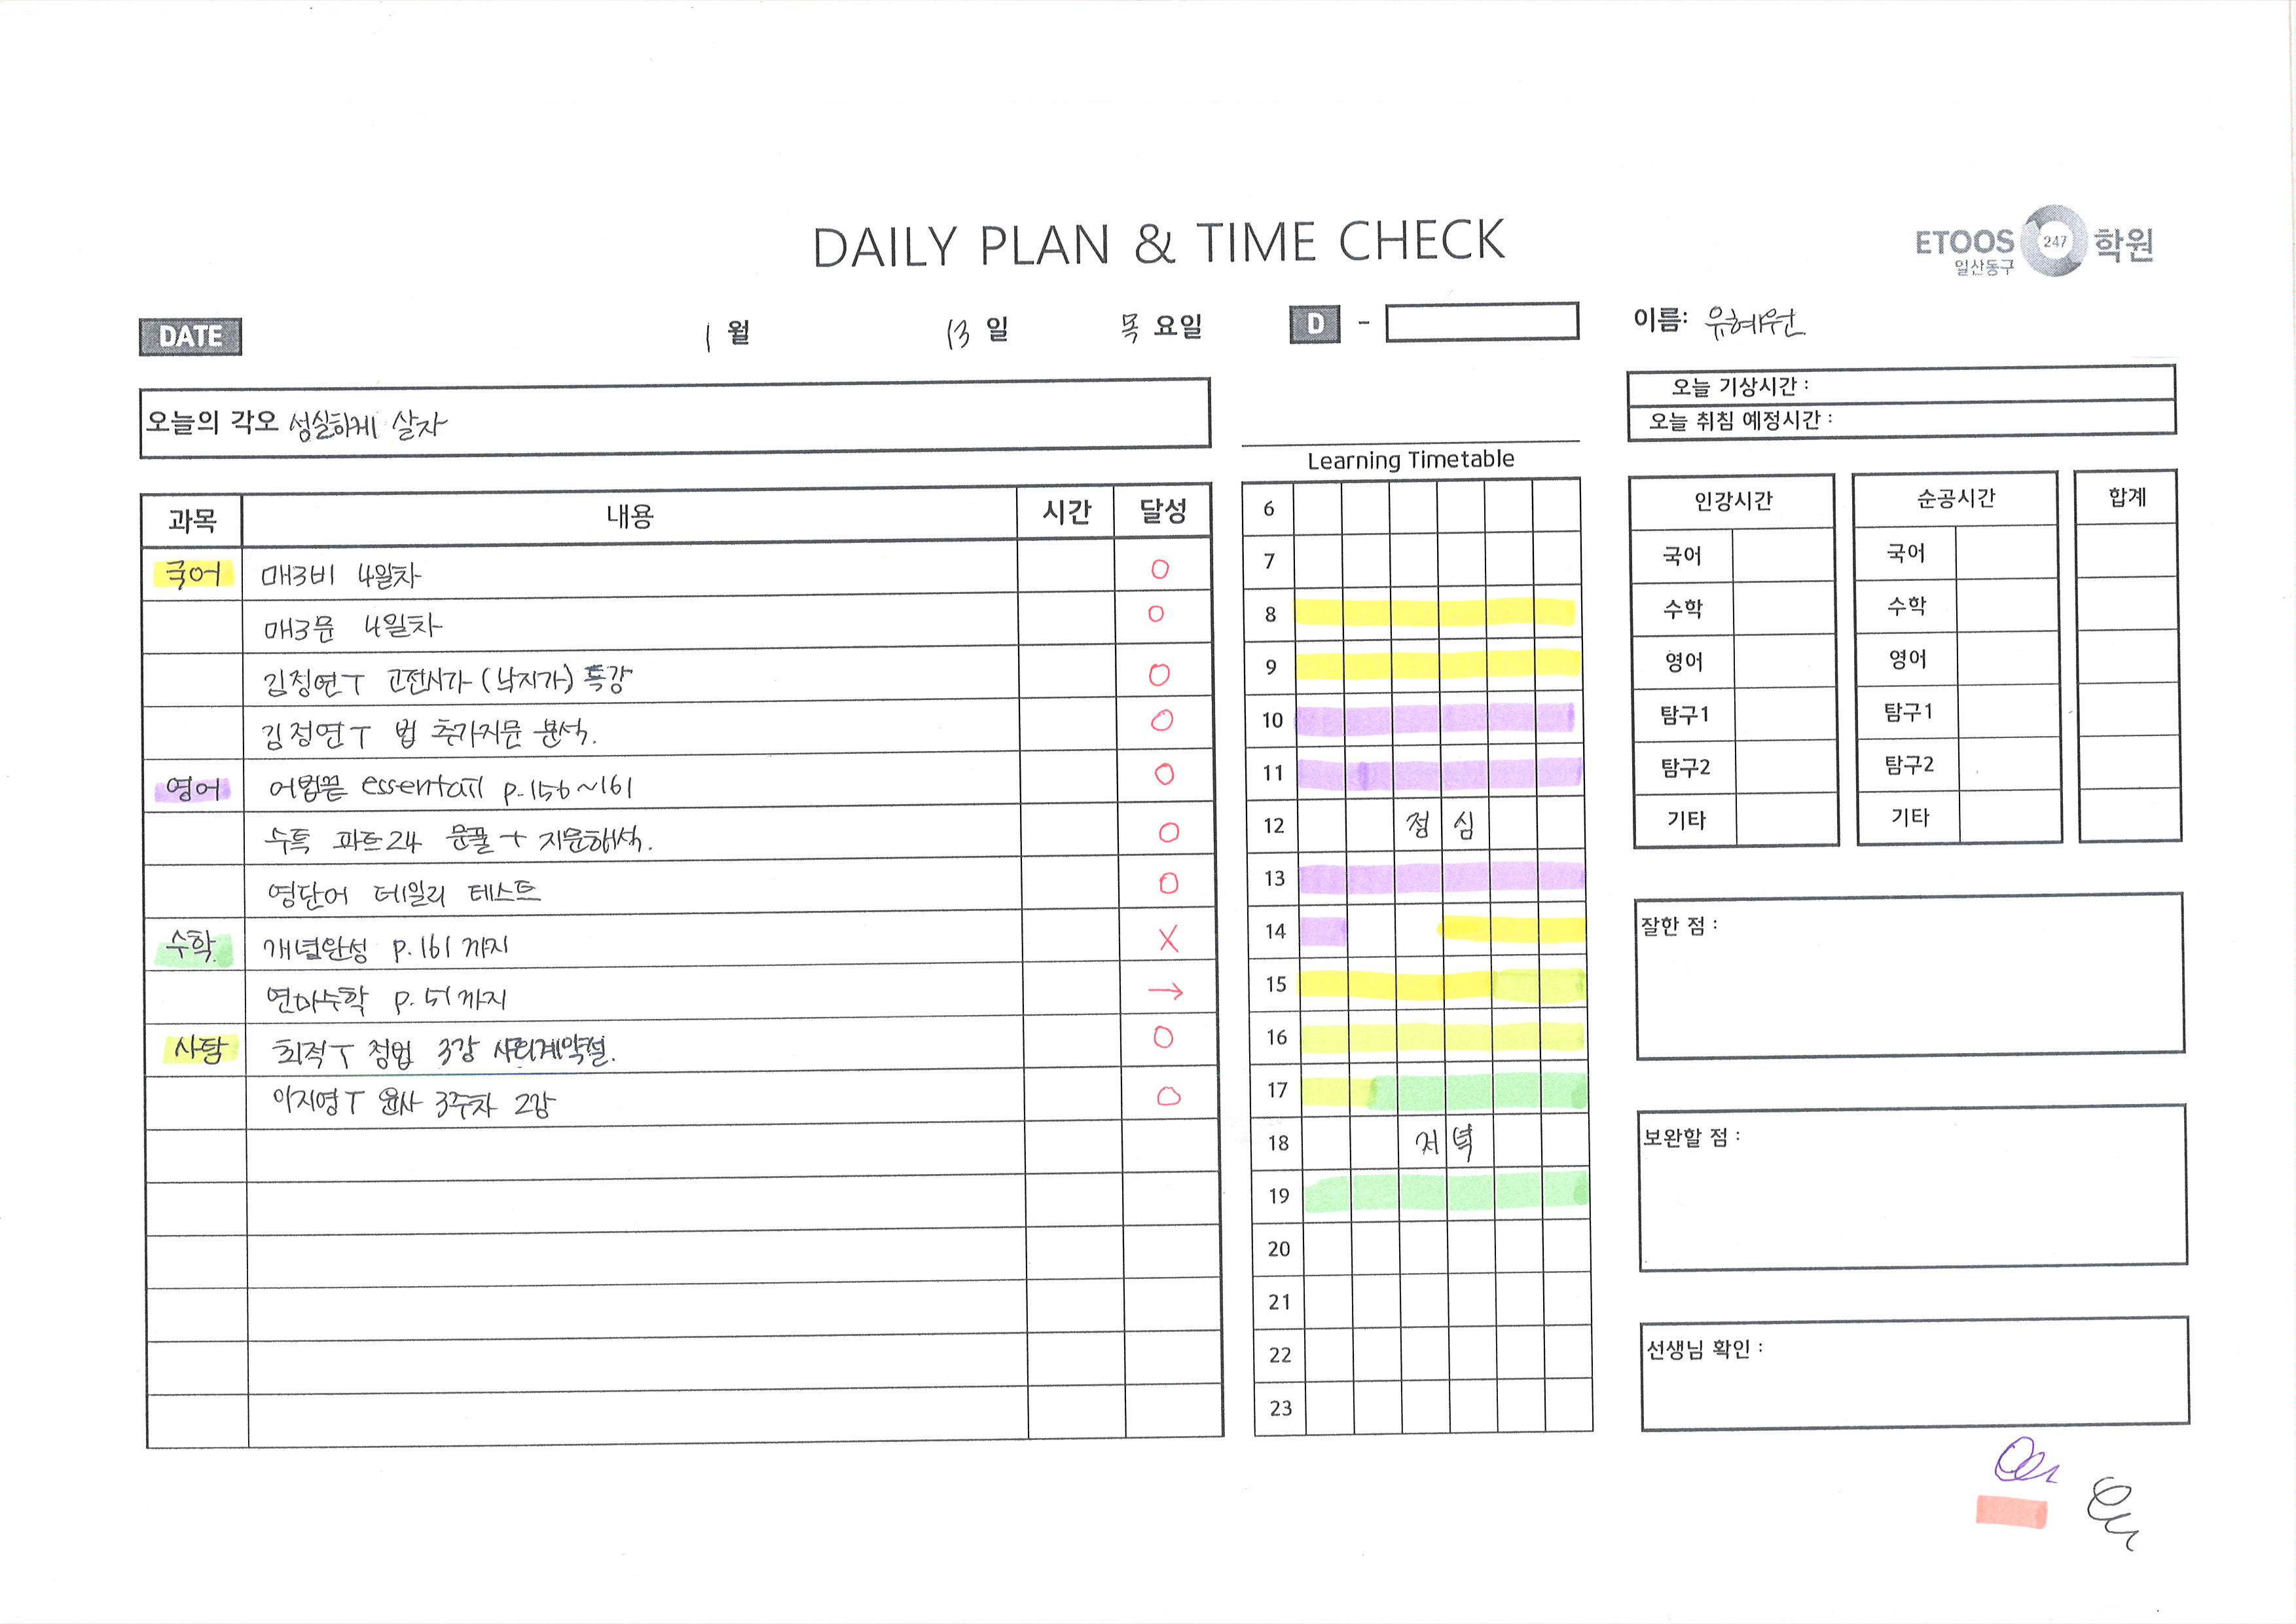 DAILY PLAN & TIME CHECK
ETOOS 247 학원
일산동구
DATE 1 월 13 일 목 요일 D -
이름: 유혜원
오늘의 각오 성실하게 살자
오늘 기상시간 :
오늘 취침 예정시간 :
과목 내용 시간 달성
국어 매3비 4일차 O
매3문 4일차 O
김정연T 고전시가 (낙지가) 특강 O
김정연T 법 추가지문 분석. O
영어 어법끝 essentail p.156~161 O
수특 파트24 문풀 + 지문해석. O
영단어 데일리 테스트 O
수학 개념완성 p.161까지 X
연마수학 p.51까지 →
사탐 최적T 정법 3강 사회계약설. O
이지영T 윤사 3주차 2강 O
Learning Timetable
6
7
8
9
10
11
12 점심
13
14
15
16
17
18 저녁
19
20
21
22
23
인강시간 순공시간 합계
국어 국어
수학 수학
영어 영어
탐구1 탐구1
탐구2 탐구2
기타 기타
잘한 점 :
보완할 점 :
선생님 확인 :